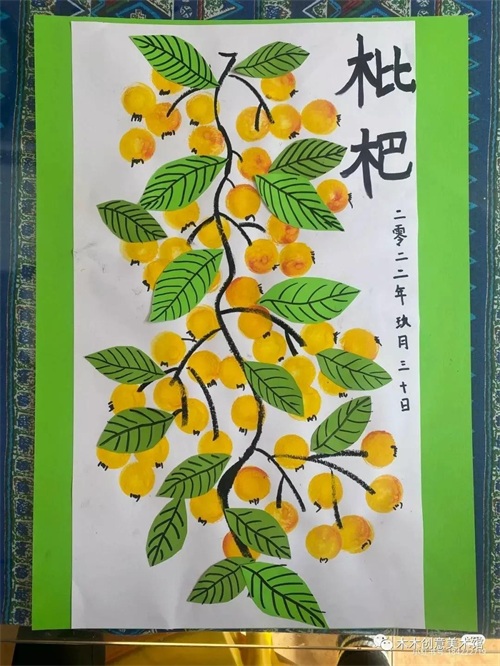 枇杷
二零二二年玖月三十日
木木创意美术馆